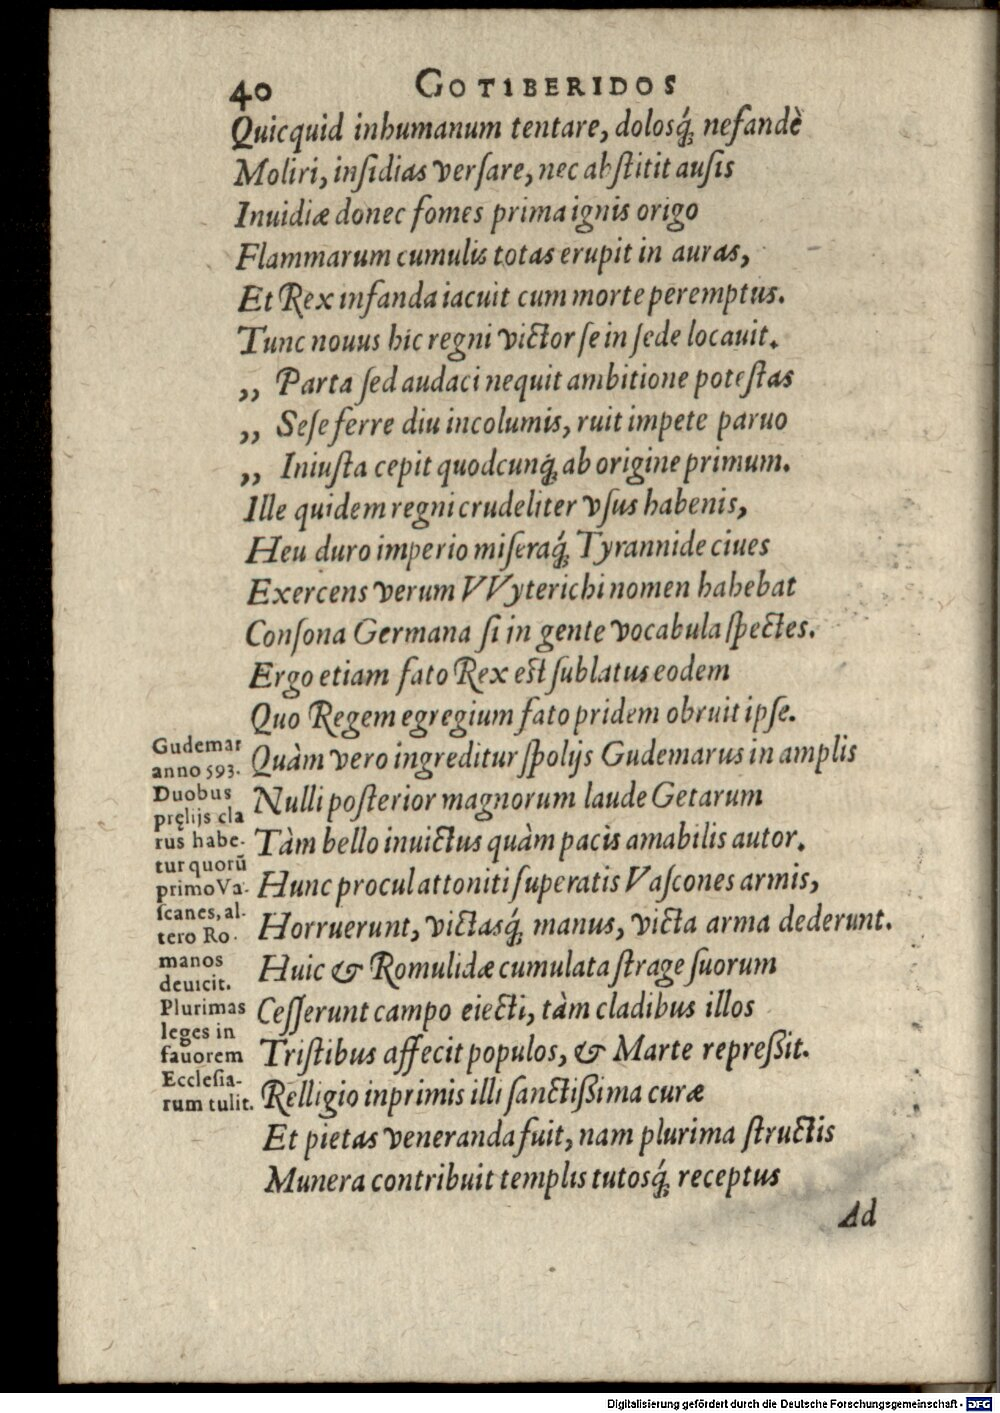 40 GOTIBERIDOS
Quicquid inhumanum tentare, dolosq́; nefandè
Moliri, insidias versare, nec abstitit ausis
Inuidiæ donec fomes prima ignis origo
Flammarum cumulis totas erupit in auras,
Et Rex infanda iacuit cum morte peremptus.
Tunc nouus hic regni victor se in sede locauit.
„ Parta sed audaci nequit ambitione potestas
„ Sese ferre diu incolumis, ruit impete paruo
„ Iniusta cepit quodcunq́; ab origine primum.
Ille quidem regni crudeliter vsus habenis,
Heu duro imperio miseraq́; Tyrannide ciues
Exercens verum VVyterichi nomen habebat
Consona Germana si in gente vocabula spectes.
Ergo etiam fato Rex est sublatus eodem
Quo Regem egregium fato pridem obruit ipse.
Quàm vero ingreditur spolijs Gudemarus in amplis
Nulli posterior magnorum laude Getarum
Tàm bello inuictus quàm pacis amabilis autor.
Hunc procul attoniti superatis Vascones armis,
Horruerunt, victasq́; manus, victa arma dederunt.
Huic & Romulidæ cumulata strage suorum
Cesserunt campo eiecti, tàm cladibus illos
Tristibus affecit populos, & Marte repreßit.
Relligio inprimis illi sanctißima curæ
Et pietas veneranda fuit, nam plurima structis
Munera contribuit templis tutosq́; receptus
Ad
Gudemar
anno 593.
Duobus
pręlijs cla
rus habe-
tur quorū
primo Va-
scanes, al-
tero Ro-
manos
deuicit.
Plurimas
leges in
fauorem
Ecclesia-
rum tulit.
Digitalisierung gefördert durch die Deutsche Forschungsgemeinschaft - DFG